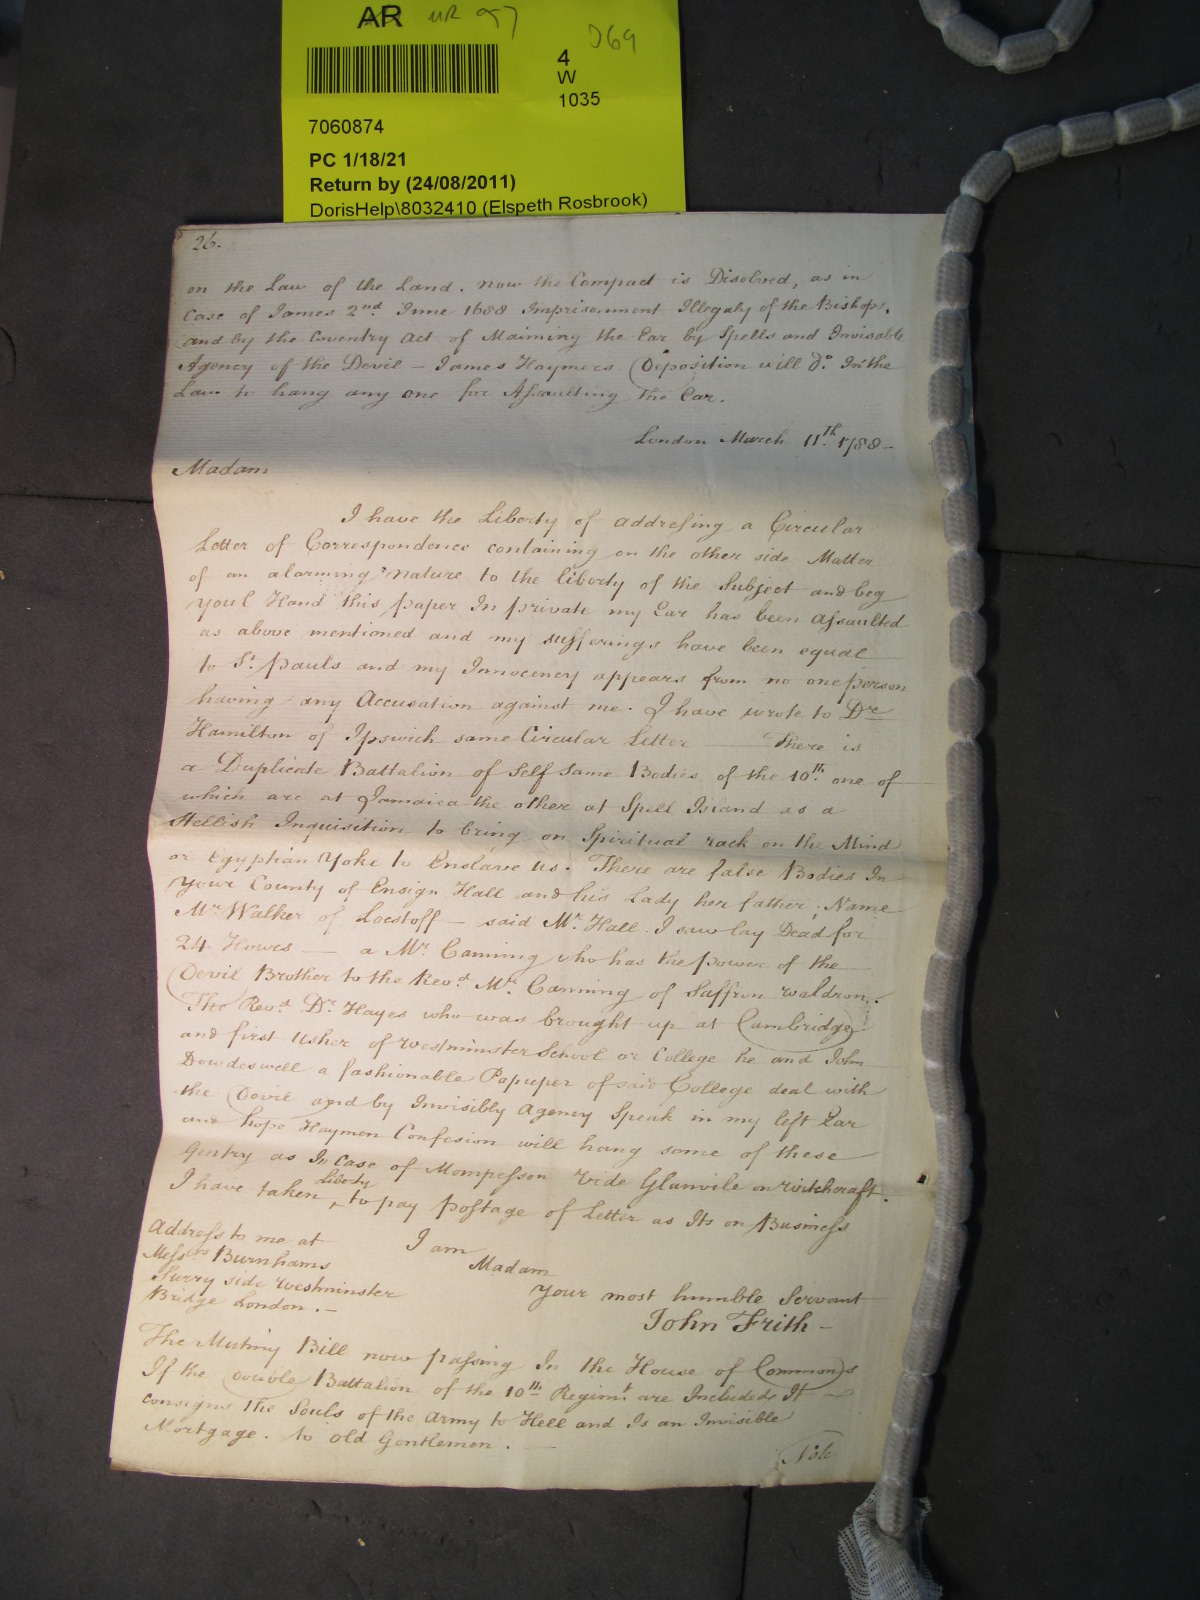 AR
MR 97
D69
4
W
1035
7060874
PC 1/18/21
Return by (24/08/2011)
DorisHelp\8032410 (Elspeth Rosbrook)
26.
on the Law of the Land. now the Compact is Disolved, as in
Case of James 2nd June 1688 Imprisonment Illegaly of the Bishops,
and by the Coventry Act of Maiming the Ear by Spells and Invisable
Agency of the Devil – James Haymers Deposition will do In the
Law to hang any one for Assaulting The Ear.
London March 11th 1788 –
Madam
I have the Liberty of addressing a Circular
Letter of Correspondence containing on the other side Matter
of an alarming nature to the liberty of the Subject and beg
youl Hand this paper In private my Ear has been assaulted
as above mentioned and my sufferings have been equal
to St. Pauls and my Innocency appears from no one person
having any Accusation against me. I have wrote to Dr
Hamilton of Ipswich same Circular Letter — There is
a Duplicate Battalion of Self Same Bodies of the 10th one of
which are at Jamaica the other at Spell Island as a
Hellish Inquisition to bring on Spiritual rack on the Mind
or Egyptian Yoke to Enslave us. There are false Bodies In
your County of Ensign Hall and his Lady her father, Name
Mr Walker of Loestoff – said Mr. Hall I saw lay Dead for
24 Howrs — a Mr. Canning who has the power of the
Devil Brother to the Revd. Mr. Canning of Saffron Waldron.
The Revd. Dr. Hayes who was brought up at Cambridge
and first Usher of Westminster School or College he and John
Dowdeswell a fashionable Papuper of said College deal with
the Devil and by Invisibly Agency Speak in my left Ear
and hope Haymen Confesion will hang some of these
Gentry as In Case of Mompesson Vide Glanvile on Witchcraft.
I have taken Liberty to pay Postage of Letter as Its on Business
Address to me at
Messrs Burnhams
Surry side Westminster
Bridge London. –
I am
Madam
Your most humble Servant
John Frith –
The Mutiny Bill now passing In the House of Commons
If the Double Battalion of the 10th Regimt are Included It
consigns the Souls of the Army to Hell and Is an Invisible
Mortgage. to Old Gentlemen. —